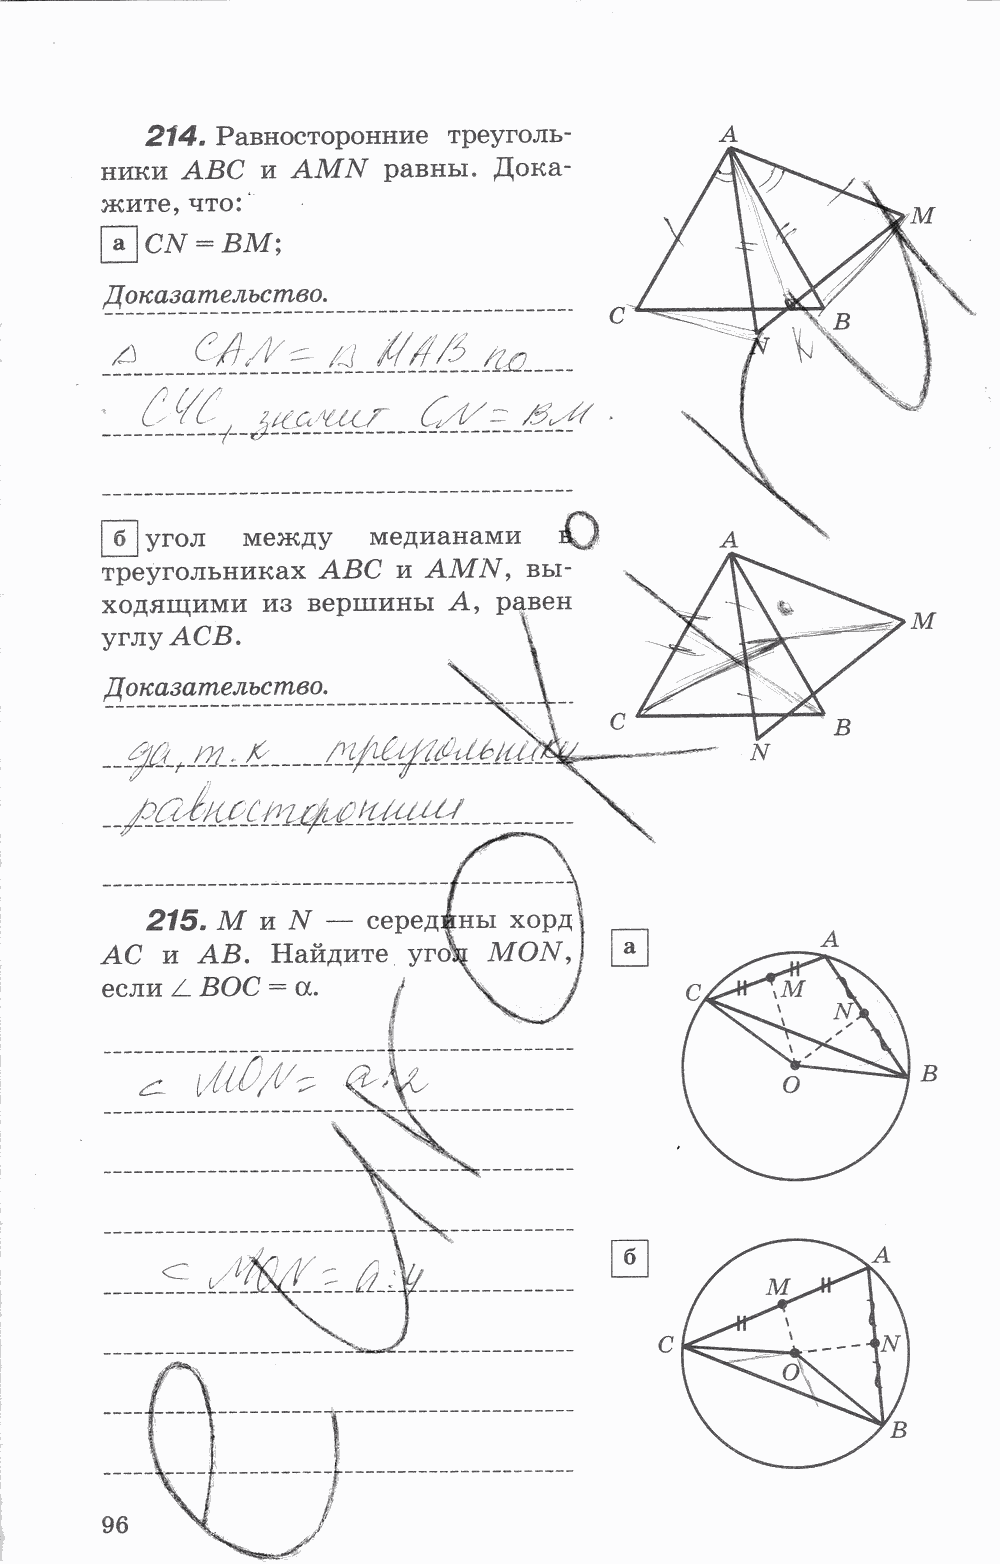 214. Равносторонние треуголь-
ники ABC и AMN равны. Дока-
жите, что:
а CN = BM;
Доказательство.
△ CAN = △ MAB по
СУС, значит CN = BM.
б угол между медианами в
треугольниках ABC и AMN, вы-
ходящими из вершины A, равен
углу ACB.
Доказательство.
да, т.к треугольники
равносторонние
215. M и N — середины хорд
AC и AB. Найдите угол MON,
если ∠ BOC = α.
< MON = a:2
< MON = a:4
A
M
C
B
N
K
A
M
C
B
N
а
A
C
M
N
O
B
б
A
M
C
N
O
B
96